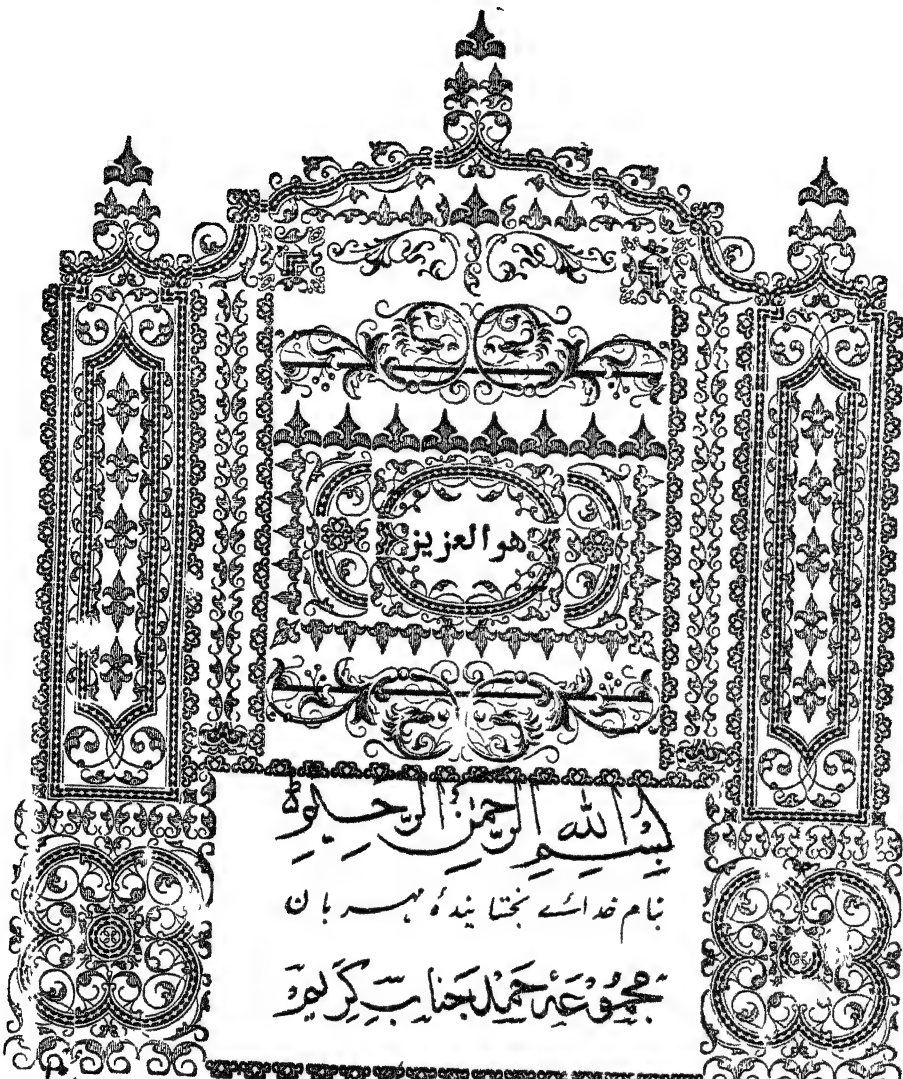 هو العزيز
بِسْمِ اللهِ الرَّحْمٰنِ الرَّحِيْمِ
بنام خدائے بخشایندۂ مہربان
مَجْمُوْعَۂ حَمْدِ جَنَابِ کَرِیْمْ